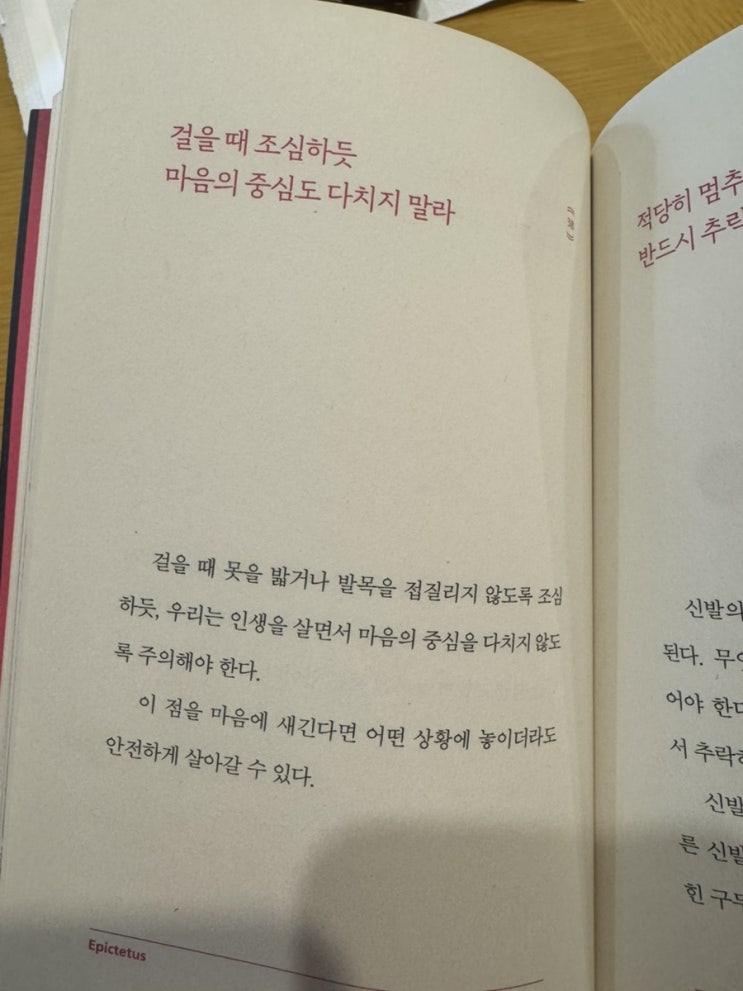 걸을 때 조심하듯
마음의 중심도 다치지 말라
걸을 때 못을 밟거나 발목을 접질리지 않도록 조심
하듯, 우리는 인생을 살면서 마음의 중심을 다치지 않도
록 주의해야 한다.
이 점을 마음에 새긴다면 어떤 상황에 놓이더라도
안전하게 살아갈 수 있다.
Epictetus
적당히 멈추
반드시 추락
신발의
된다. 무엇
어야 한다
서 추락하
신발
른 신발
힌 구두